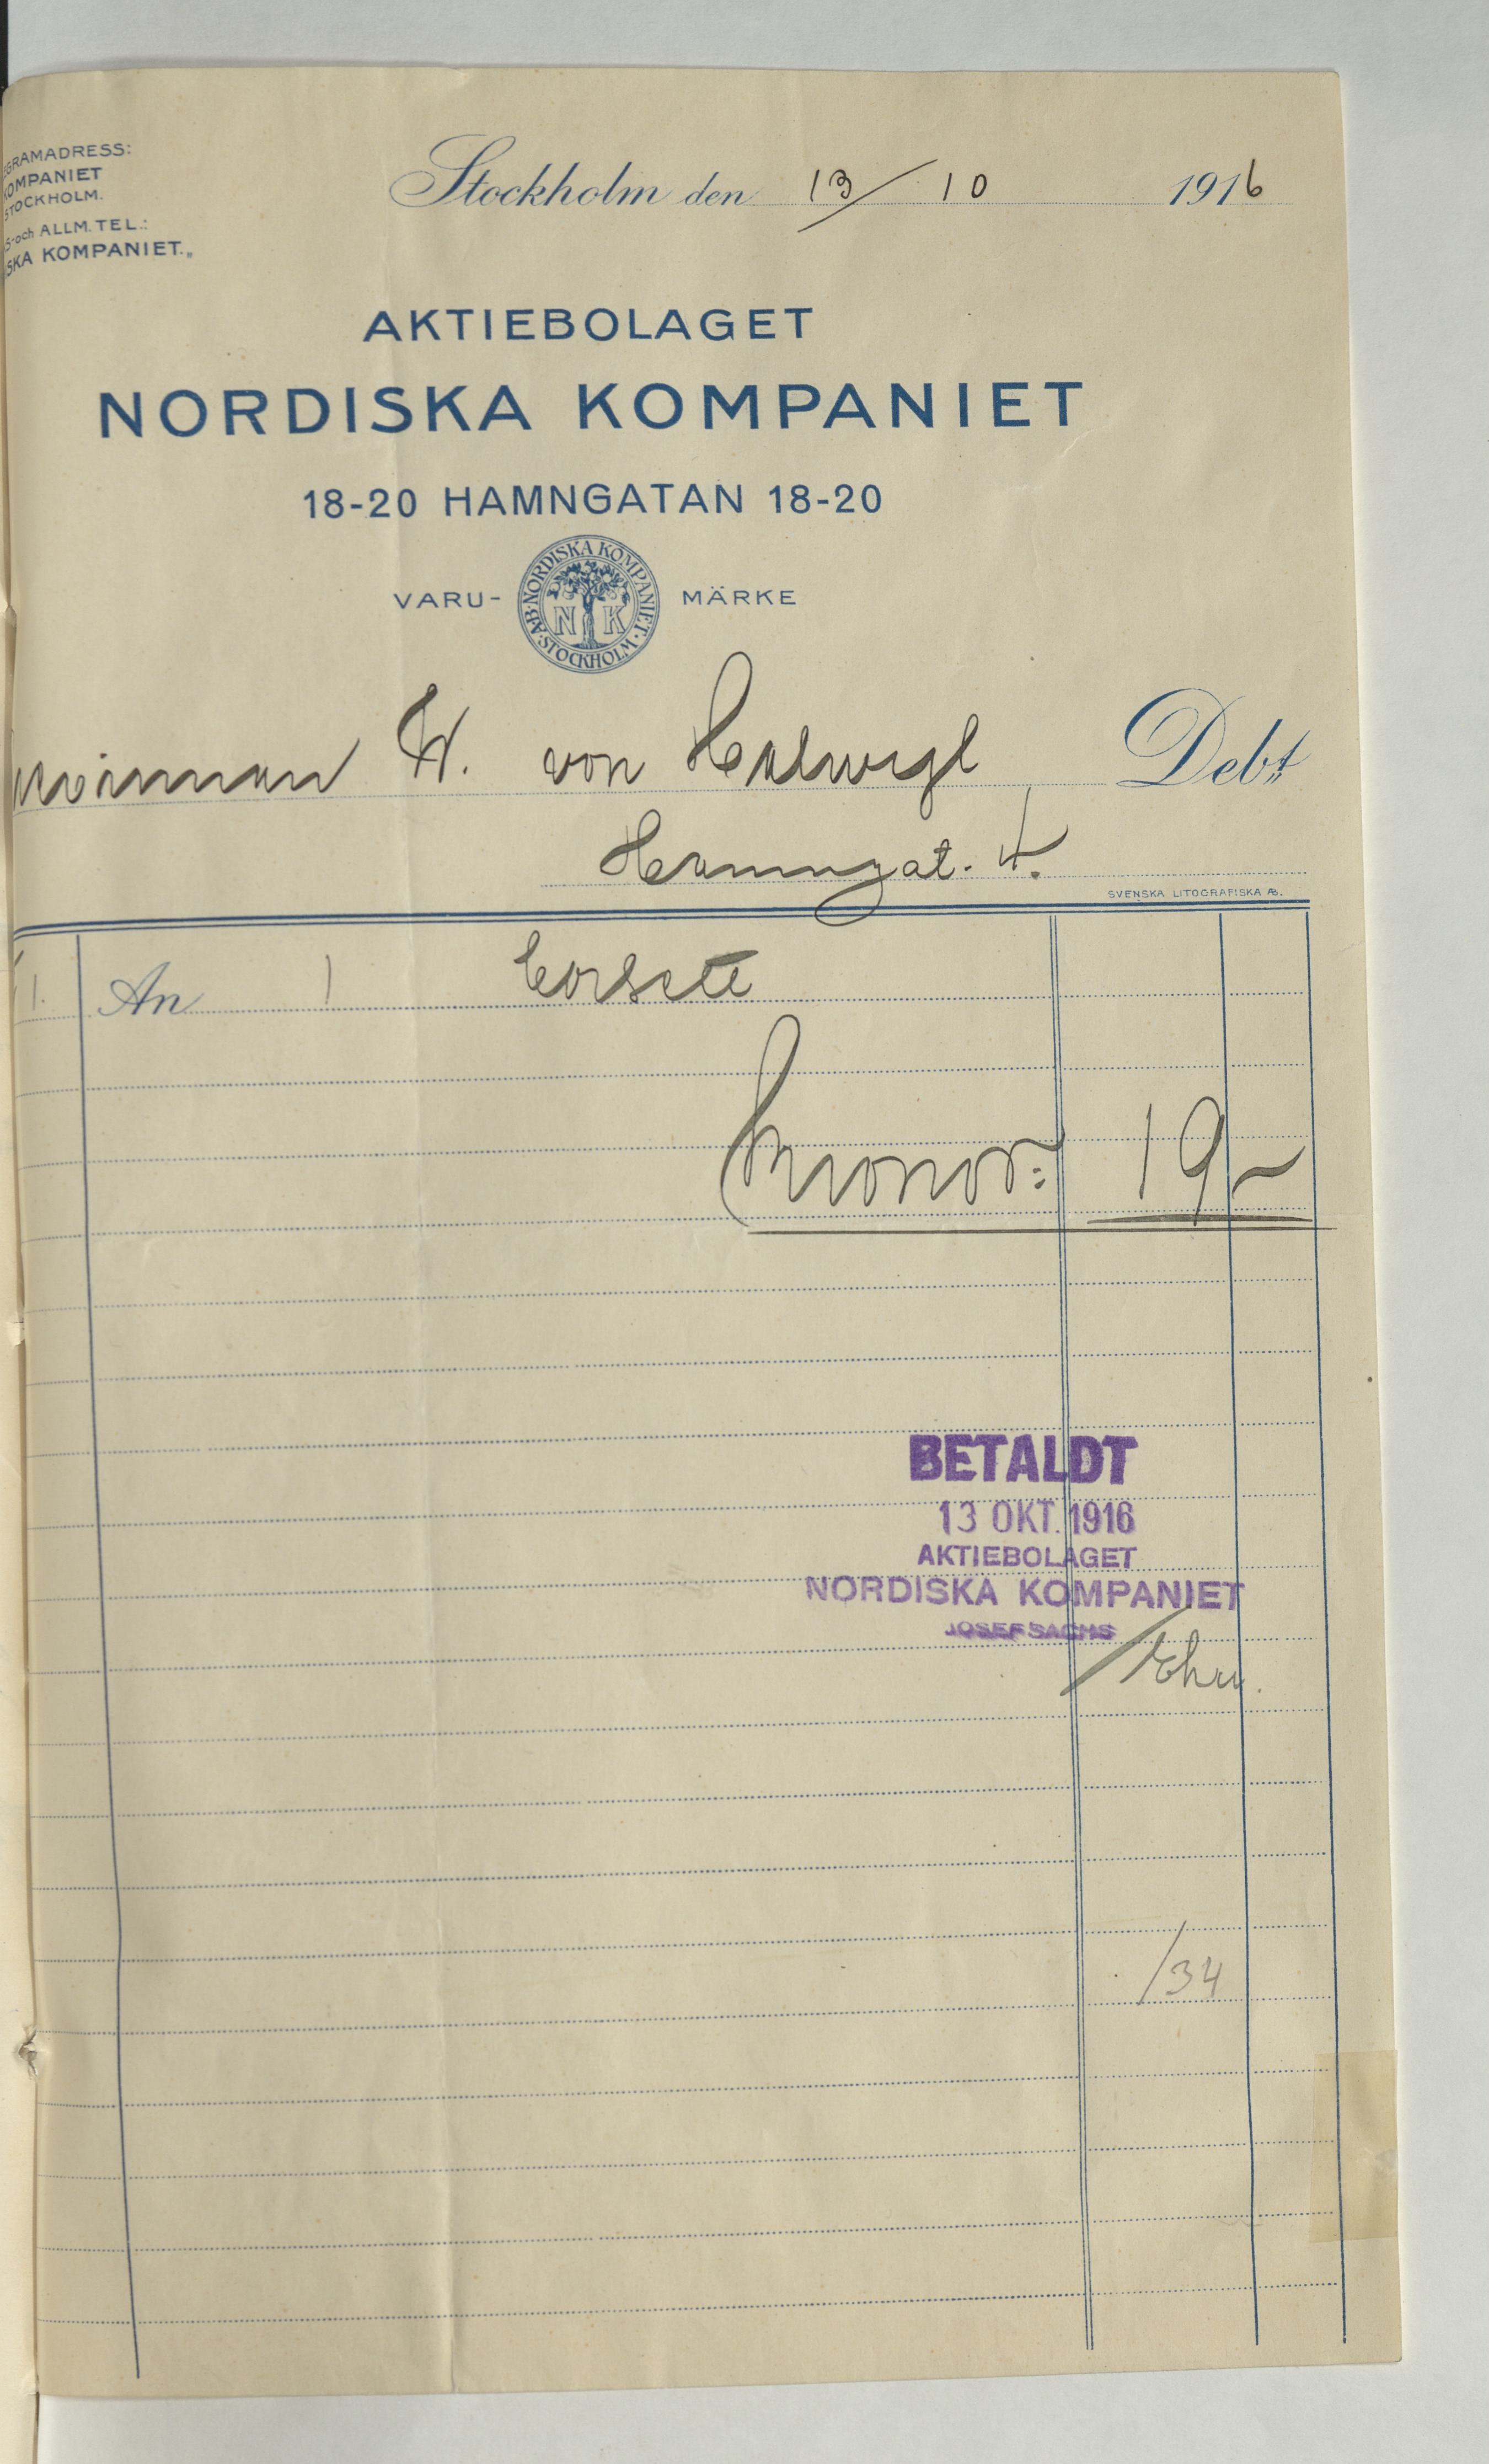 GRAMADRESS:
KOMPANIET
STOCKHOLM.
S- och ALLM. TEL.:
SKA KOMPANIET.„
Stockholm den 13/10 1916
AKTIEBOLAGET
NORDISKA KOMPANIET
18-20 HAMNGATAN 18-20
VARU- MÄRKE
A.B. NORDISKA KOMPANIET. STOCKHOLM
N K
W. von Hallwyl Debt
Hamngat. 4.
SVENSKA LITOGRAFISKA AB.
1. An 1 Corsett
Kronor: 19 –
BETALDT
13 OKT. 1916
AKTIEBOLAGET
NORDISKA KOMPANIET
JOSEF SACHS
/34